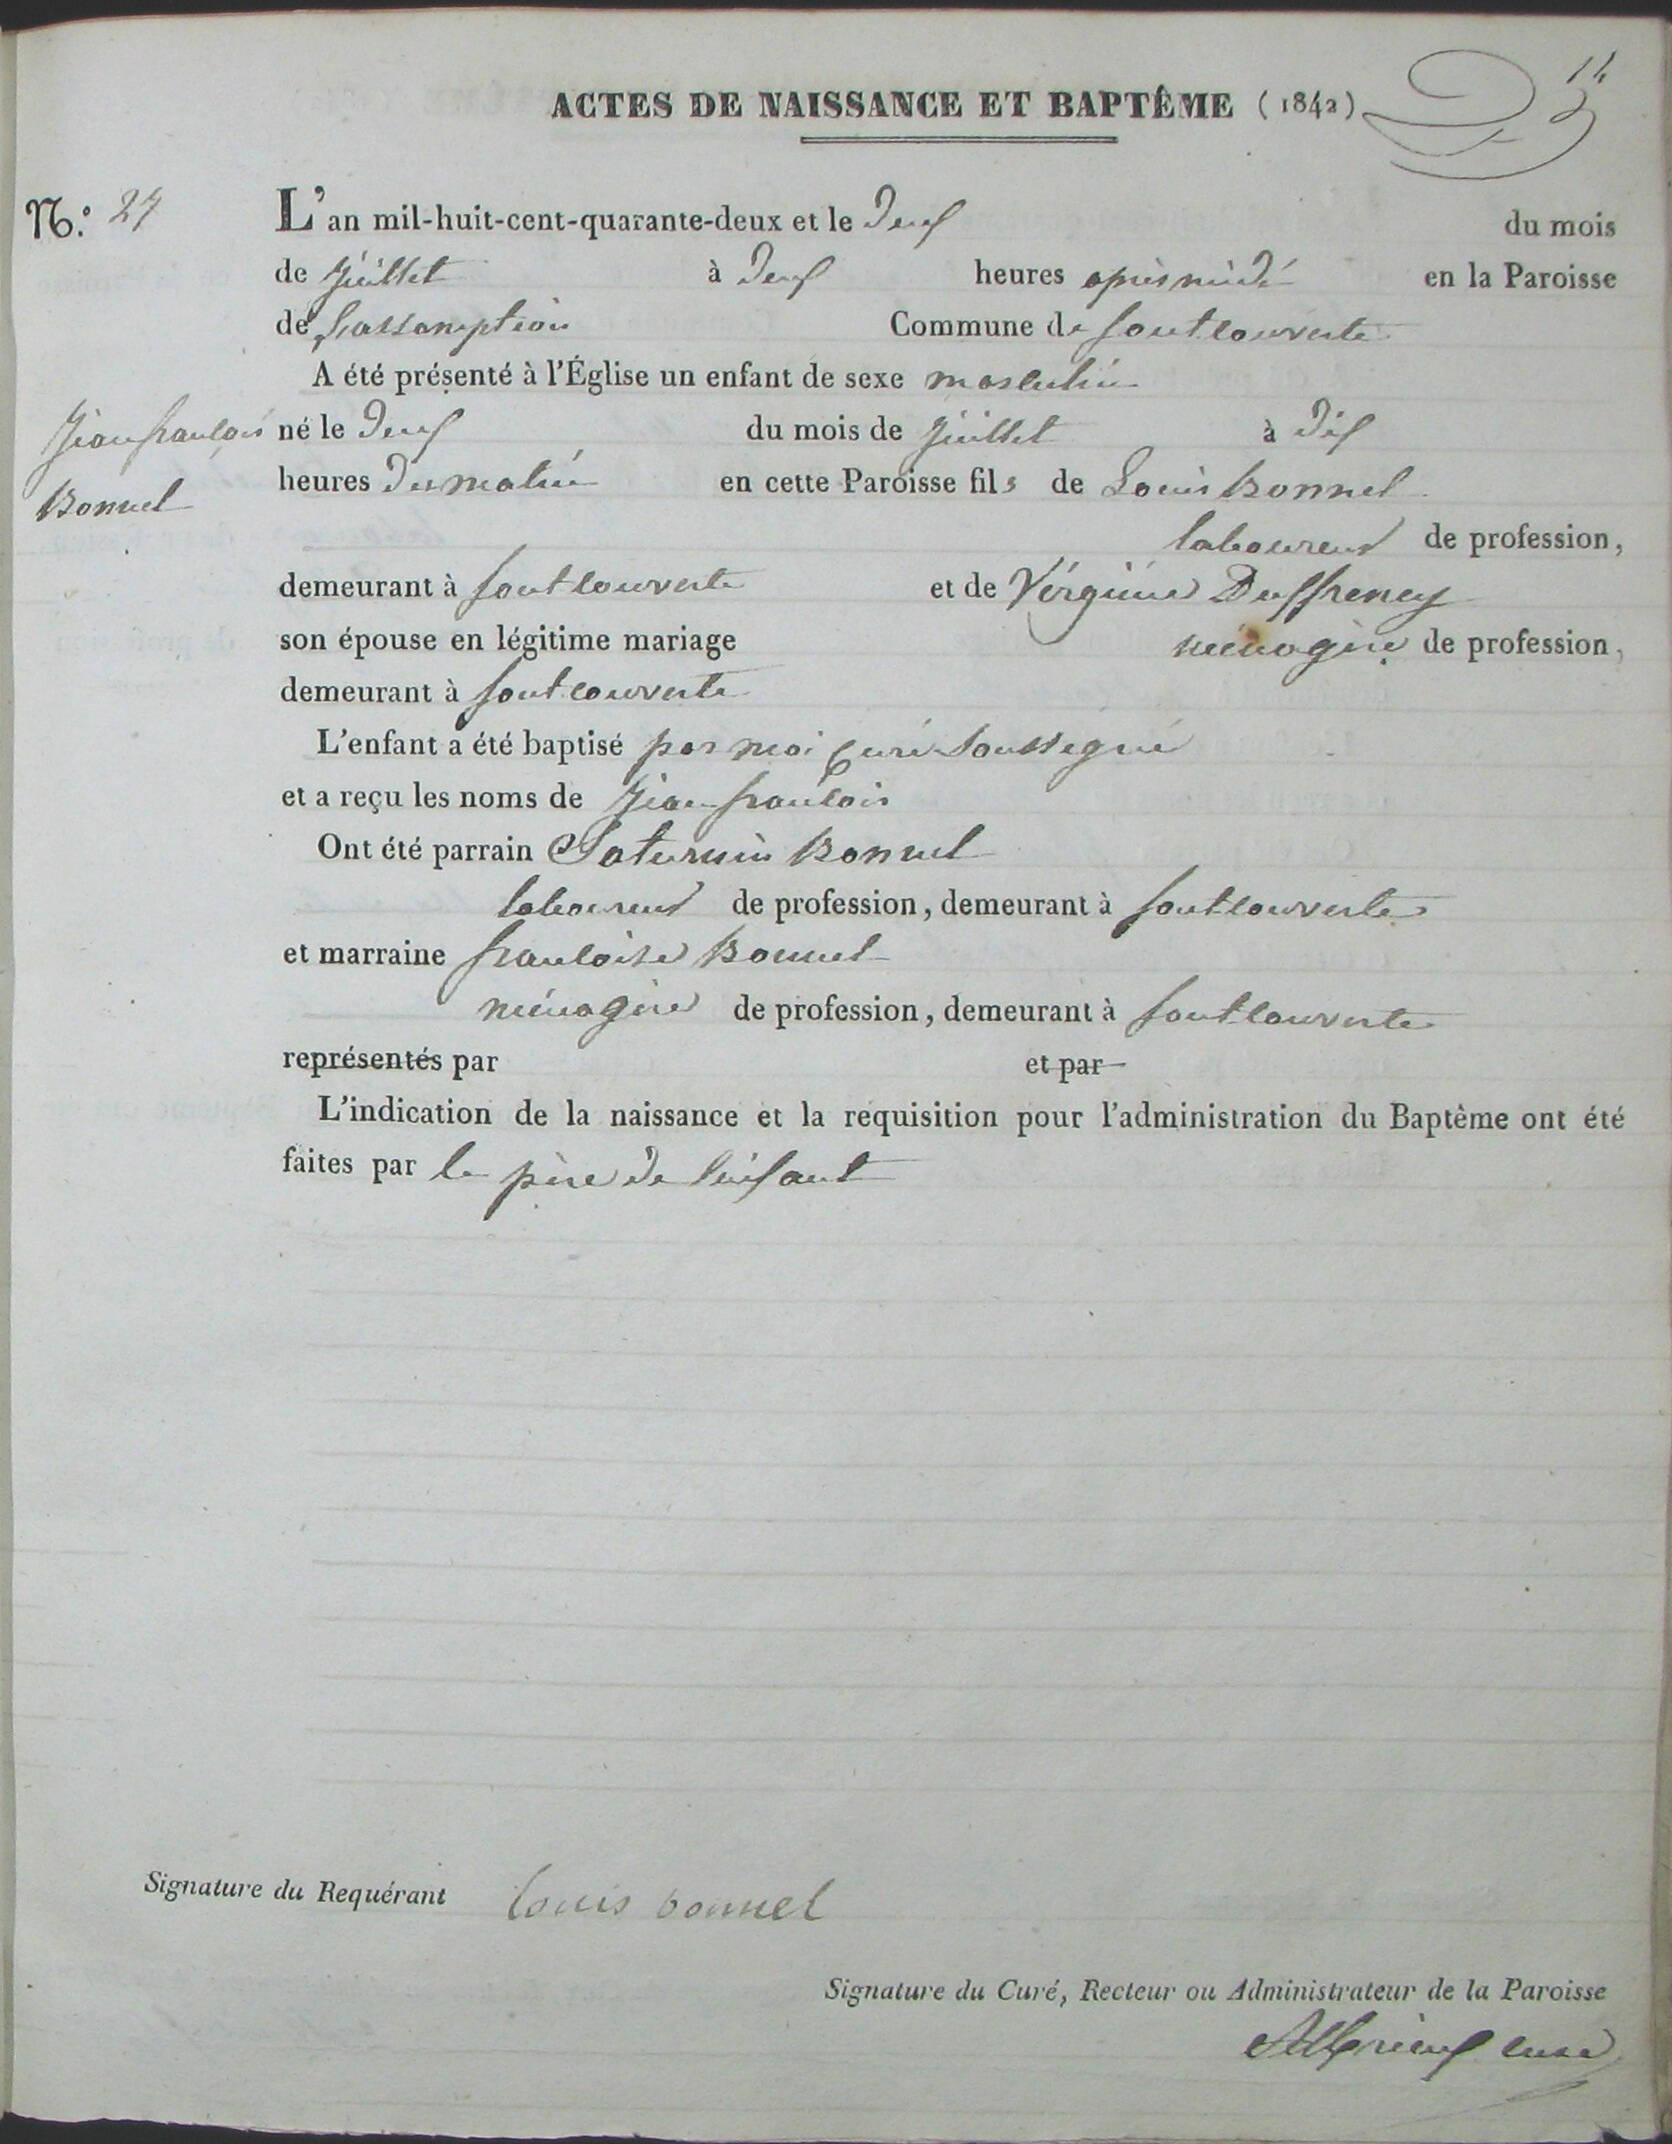 ACTES DE NAISSANCE ET BAPTÊME (1842)
14
N.º 27
L'an mil-huit-cent-quarante-deux et le deux du mois
de juillet à deux heures après midi en la Paroisse
de l'assomption Commune de fontcouverte
A été présenté à l'Église un enfant de sexe masculin
Jean françois né le deux du mois de juillet à dix
Bonnel
heures du matin en cette Paroisse fils de Louis Bonnel
laboureur de profession,
demeurant à fontcouverte et de Virginie Duffreney
son épouse en légitime mariage ménagère de profession,
demeurant à fontcouverte
L'enfant a été baptisé par moi curé soussigné
et a reçu les noms de Jean françois
Ont été parrain Saturnin Bonnel
laboureur de profession, demeurant à fontcouverte
et marraine françoise Bonnel
ménagère de profession, demeurant à fontcouverte
représentés par et par
L'indication de la naissance et la requisition pour l'administration du Baptême ont été
faites par le père de l'enfant
Signature du Requérant louis bonnel
Signature du Curé, Recteur ou Administrateur de la Paroisse
curé